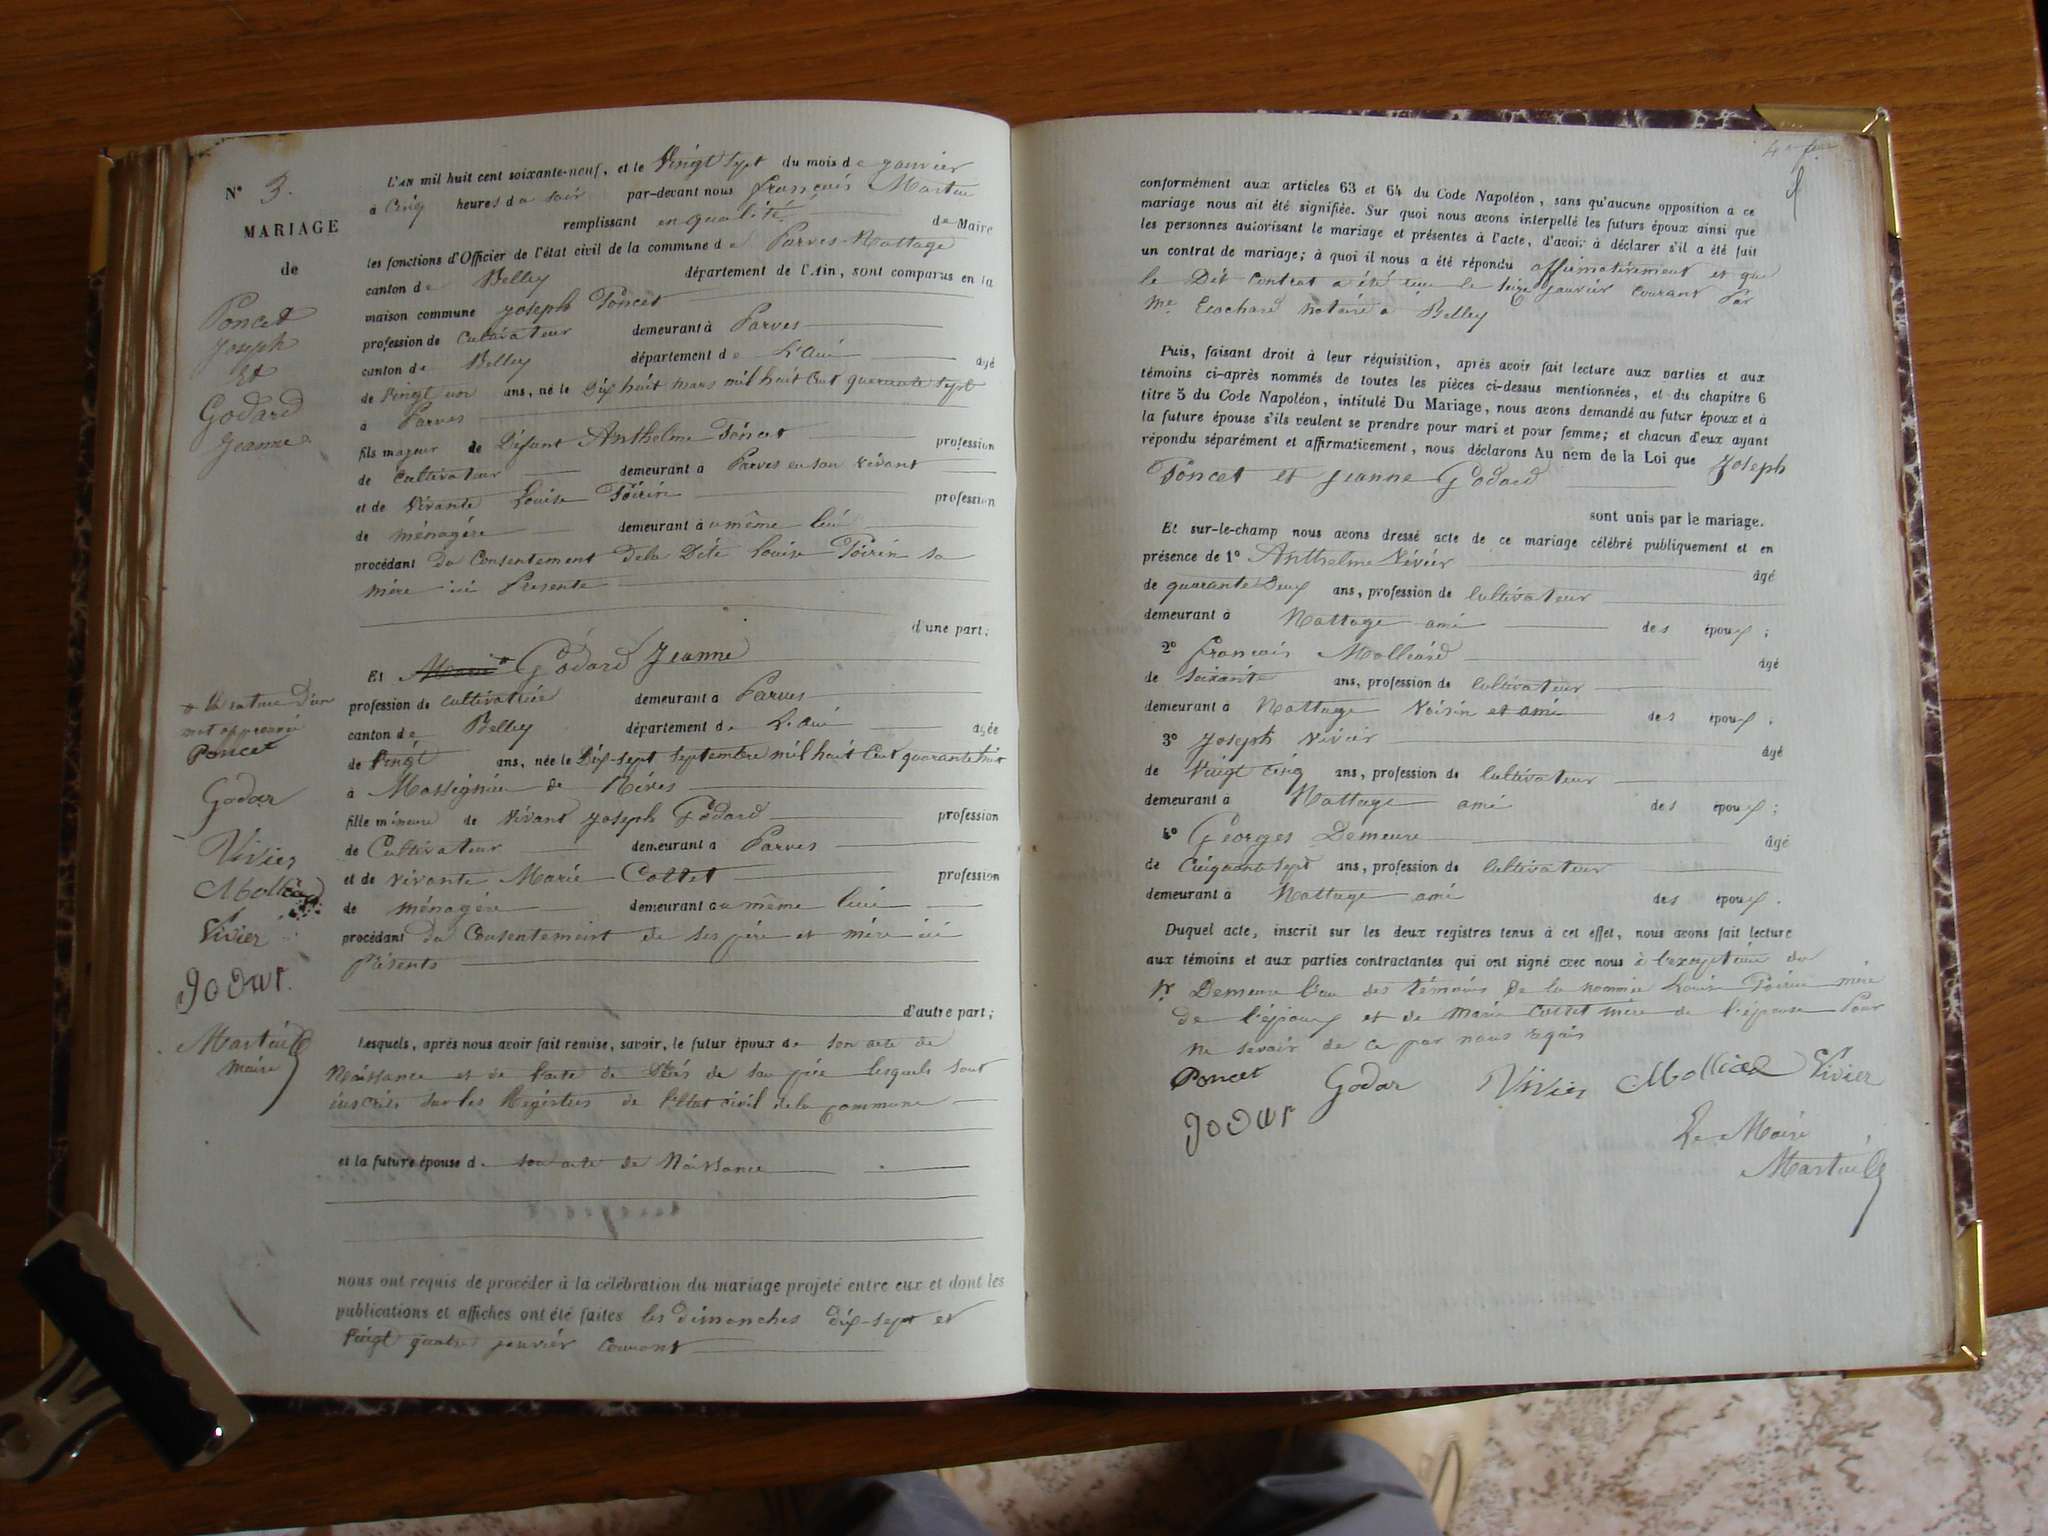 N° 3.
MARIAGE
de
Poncet
Joseph
Et
Godard
Jeanne
L'AN mil huit cent soixante-neuf, et le Vingt sept du mois de janvier
à Cinq heures du soir par-devant nous français Martin
remplissant en qualité de Maire
les fonctions d'Officier de l'état civil de la commune de Parves-Nattage
canton de Belley département de l'Ain, sont comparus en la
maison commune Joseph Poncet
profession de Cultivateur demeurant à Parves
canton de Belley département de L'Ain âgé
de Vingt un ans, né le Dix huit mars mil huit Cent quarante sept
à Parves
fils majeur de Défunt Anthelme Poncet profession
de Cultivateur demeurant à Parves en son vivant
et de Vivante Louise Poirin profession
de ménagère demeurant au même lieu
procédant du Consentement de la Dite Louise Poirin sa
mère ici Présente
d'une part;
Et Marie * Godard Jeanne
profession de cultivatrice demeurant à Parves
canton de Belley département de L'Ain âgée
de Vingt ans, née le Dix-sept septembre mil huit Cent quarante huit
à Massignieu de Rives
fille mineure de Vivant Joseph Godard profession
de Cultivateur demeurant à Parves
et de vivante Marie Cottet profession
de ménagère demeurant au même lieu
procédant du Consentement de ses père et mère ici
Présents
d'autre part;
* La rature d'un
mot approuvé
Poncet
Godar
Vivier
Molliard
Vivier
godar.
Martin
maire
Lesquels, après nous avoir fait remise, savoir, le futur époux de son acte de
Naissance et de l'acte de Décès de son père lesquels sont
inscrits sur les Registres de l'Etat civil de la commune
et la future épouse de son acte de Naissance
nous ont requis de procéder à la célébration du mariage projeté entre eux et dont les
publications et affiches ont été faites les dimanches dix-sept et
Vingt quatre janvier Courant
conformément aux articles 63 et 64 du Code Napoléon, sans qu'aucune opposition à ce
mariage nous ait été signifiée. Sur quoi nous avons interpellé les futurs époux ainsi que
les personnes autorisant le mariage et présentes à l'acte, d'avoir à déclarer s'il a été fait
un contrat de mariage; à quoi il nous a été répondu affirmativement et que
le Dit Contrat a été reçu le seize janvier courant Par
Me. notaire à Belley
Puis, faisant droit à leur réquisition, après avoir fait lecture aux parties et aux
témoins ci-après nommés de toutes les pièces ci-dessus mentionnées, et du chapitre 6
titre 5 du Code Napoléon, intitulé Du Mariage, nous avons demandé au futur époux et à
la future épouse s'ils veulent se prendre pour mari et pour femme; et chacun d'eux ayant
répondu séparément et affirmativement, nous déclarons Au nom de la Loi que Joseph
Poncet et Jeanne Godard
sont unis par le mariage.
Et sur-le-champ nous avons dressé acte de ce mariage célébré publiquement et en
présence de 1° Anthelme Vivier âgé
de quarante Deux ans, profession de Cultivateur
demeurant à Nattage ami des époux;
2° français Molliard âgé
de soixante ans, profession de Cultivateur
demeurant à Nattage Voisin et ami des époux;
3° Joseph Vivier âgé
de Vingt Cinq ans, profession de Cultivateur
demeurant à Nattage ami des époux;
4° Georges Demeure âgé
de Cinquante Sept ans, profession de Cultivateur
demeurant à Nattage ami des époux.
Duquel acte, inscrit sur les deux registres tenus à cet effet, nous avons fait lecture
aux témoins et aux parties contractantes qui ont signé avec nous à l'exception du
Sr Demeure l'un des témoins De la nommée Louise Poirin mère
de l'époux et de Marie Cottet mère de l'épouse Pour
ne savoir de ce par nous requis
Poncet Godar Vivier Molliard Vivier
godar
Le Maire
Martin